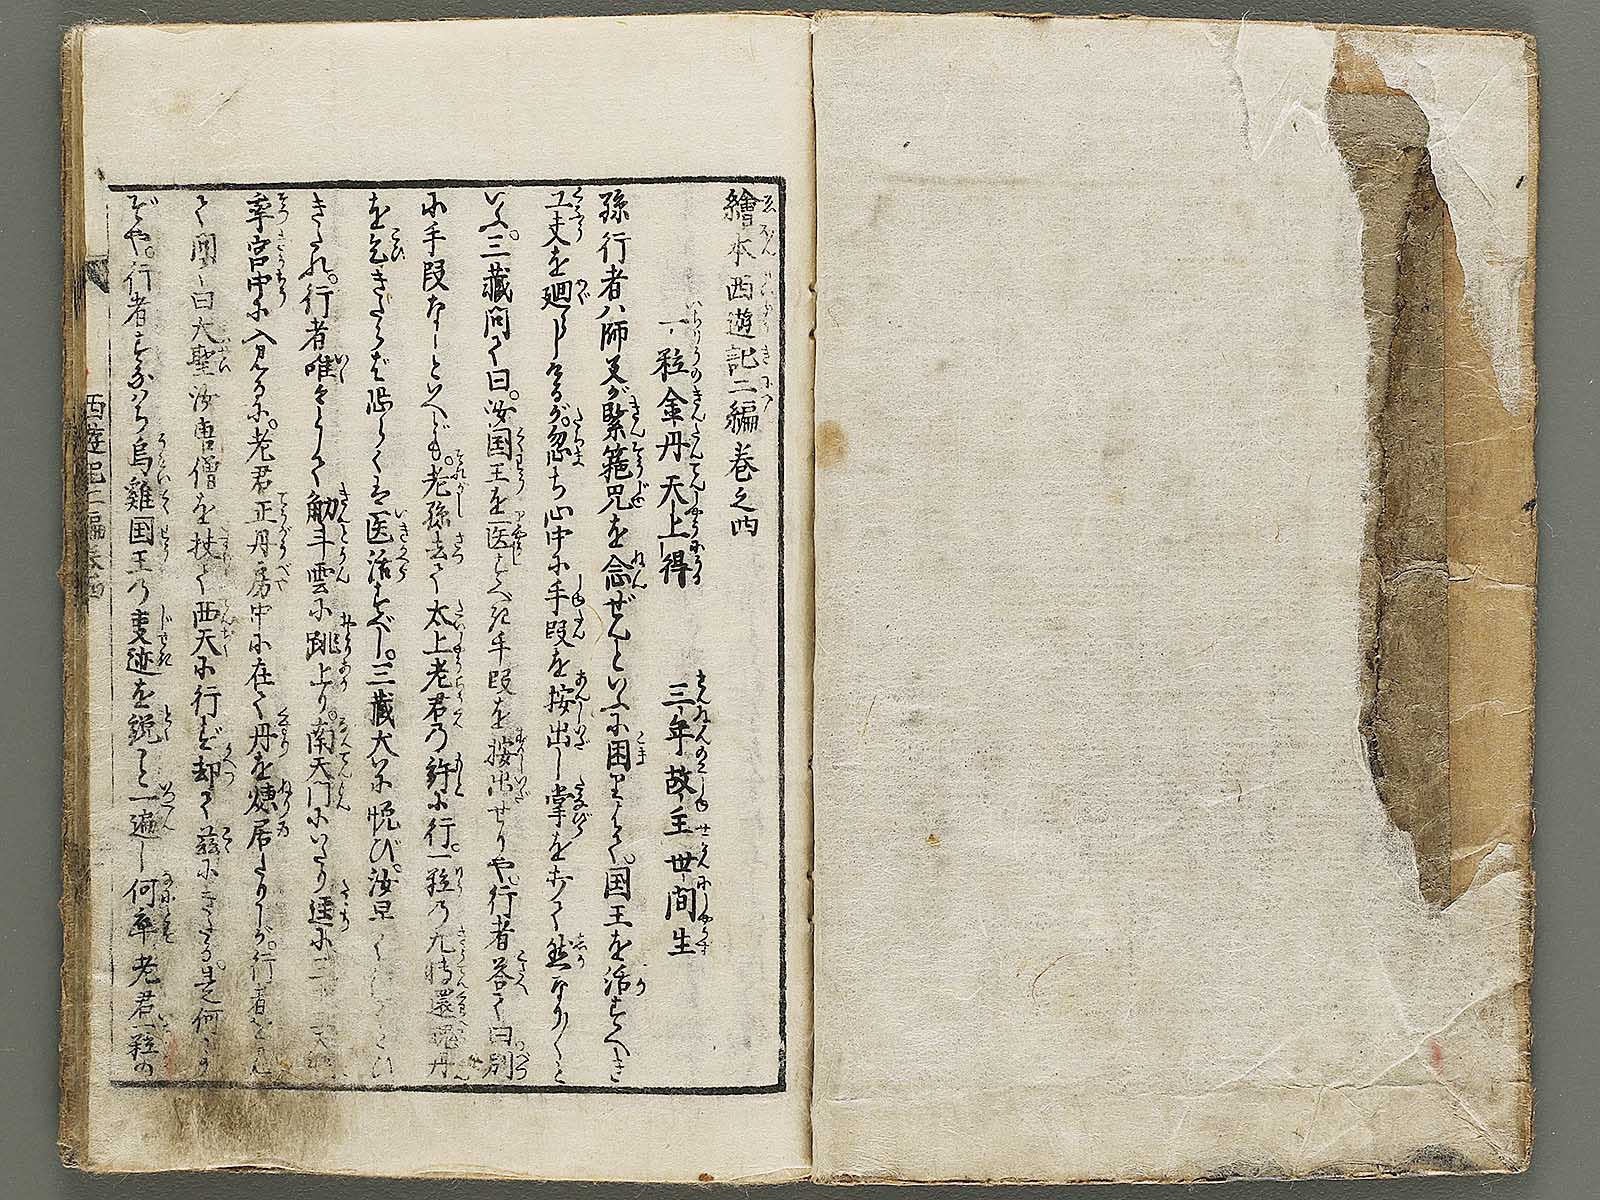 繪本西遊記二編巻之四
一粒金丹天上得　三年故主世間生
孫行者ハ師父が緊箍咒を念ぜんといふに困りはて。国王を活すべき
工夫を廻しけるが。忽ち心中に手段を按出し掌をおつて然なり〳〵と
いふ。三藏問て曰。汝国王を医すべき手段を按出せりや。行者答て曰別
に手段なしといへども。老孫去て太上老君の許に行。一粒の九轉還魂丹
を乞きたらば恐らくは医活すべし。三藏大に悦び。汝早く
きたれ。行者唯々として觔斗雲に跳上り。南天門にいたり逕に
率宮中に入見るに。老君正丹房中に在て丹を煉居たりしが。行者を見
て問て曰大聖汝唐僧を扶て西天に行ず却て茲にきたる。是何
ぞや。行者すなはち烏雞国王の事迹を説こと一遍し何卒老君一粒の
西遊記二編巻四